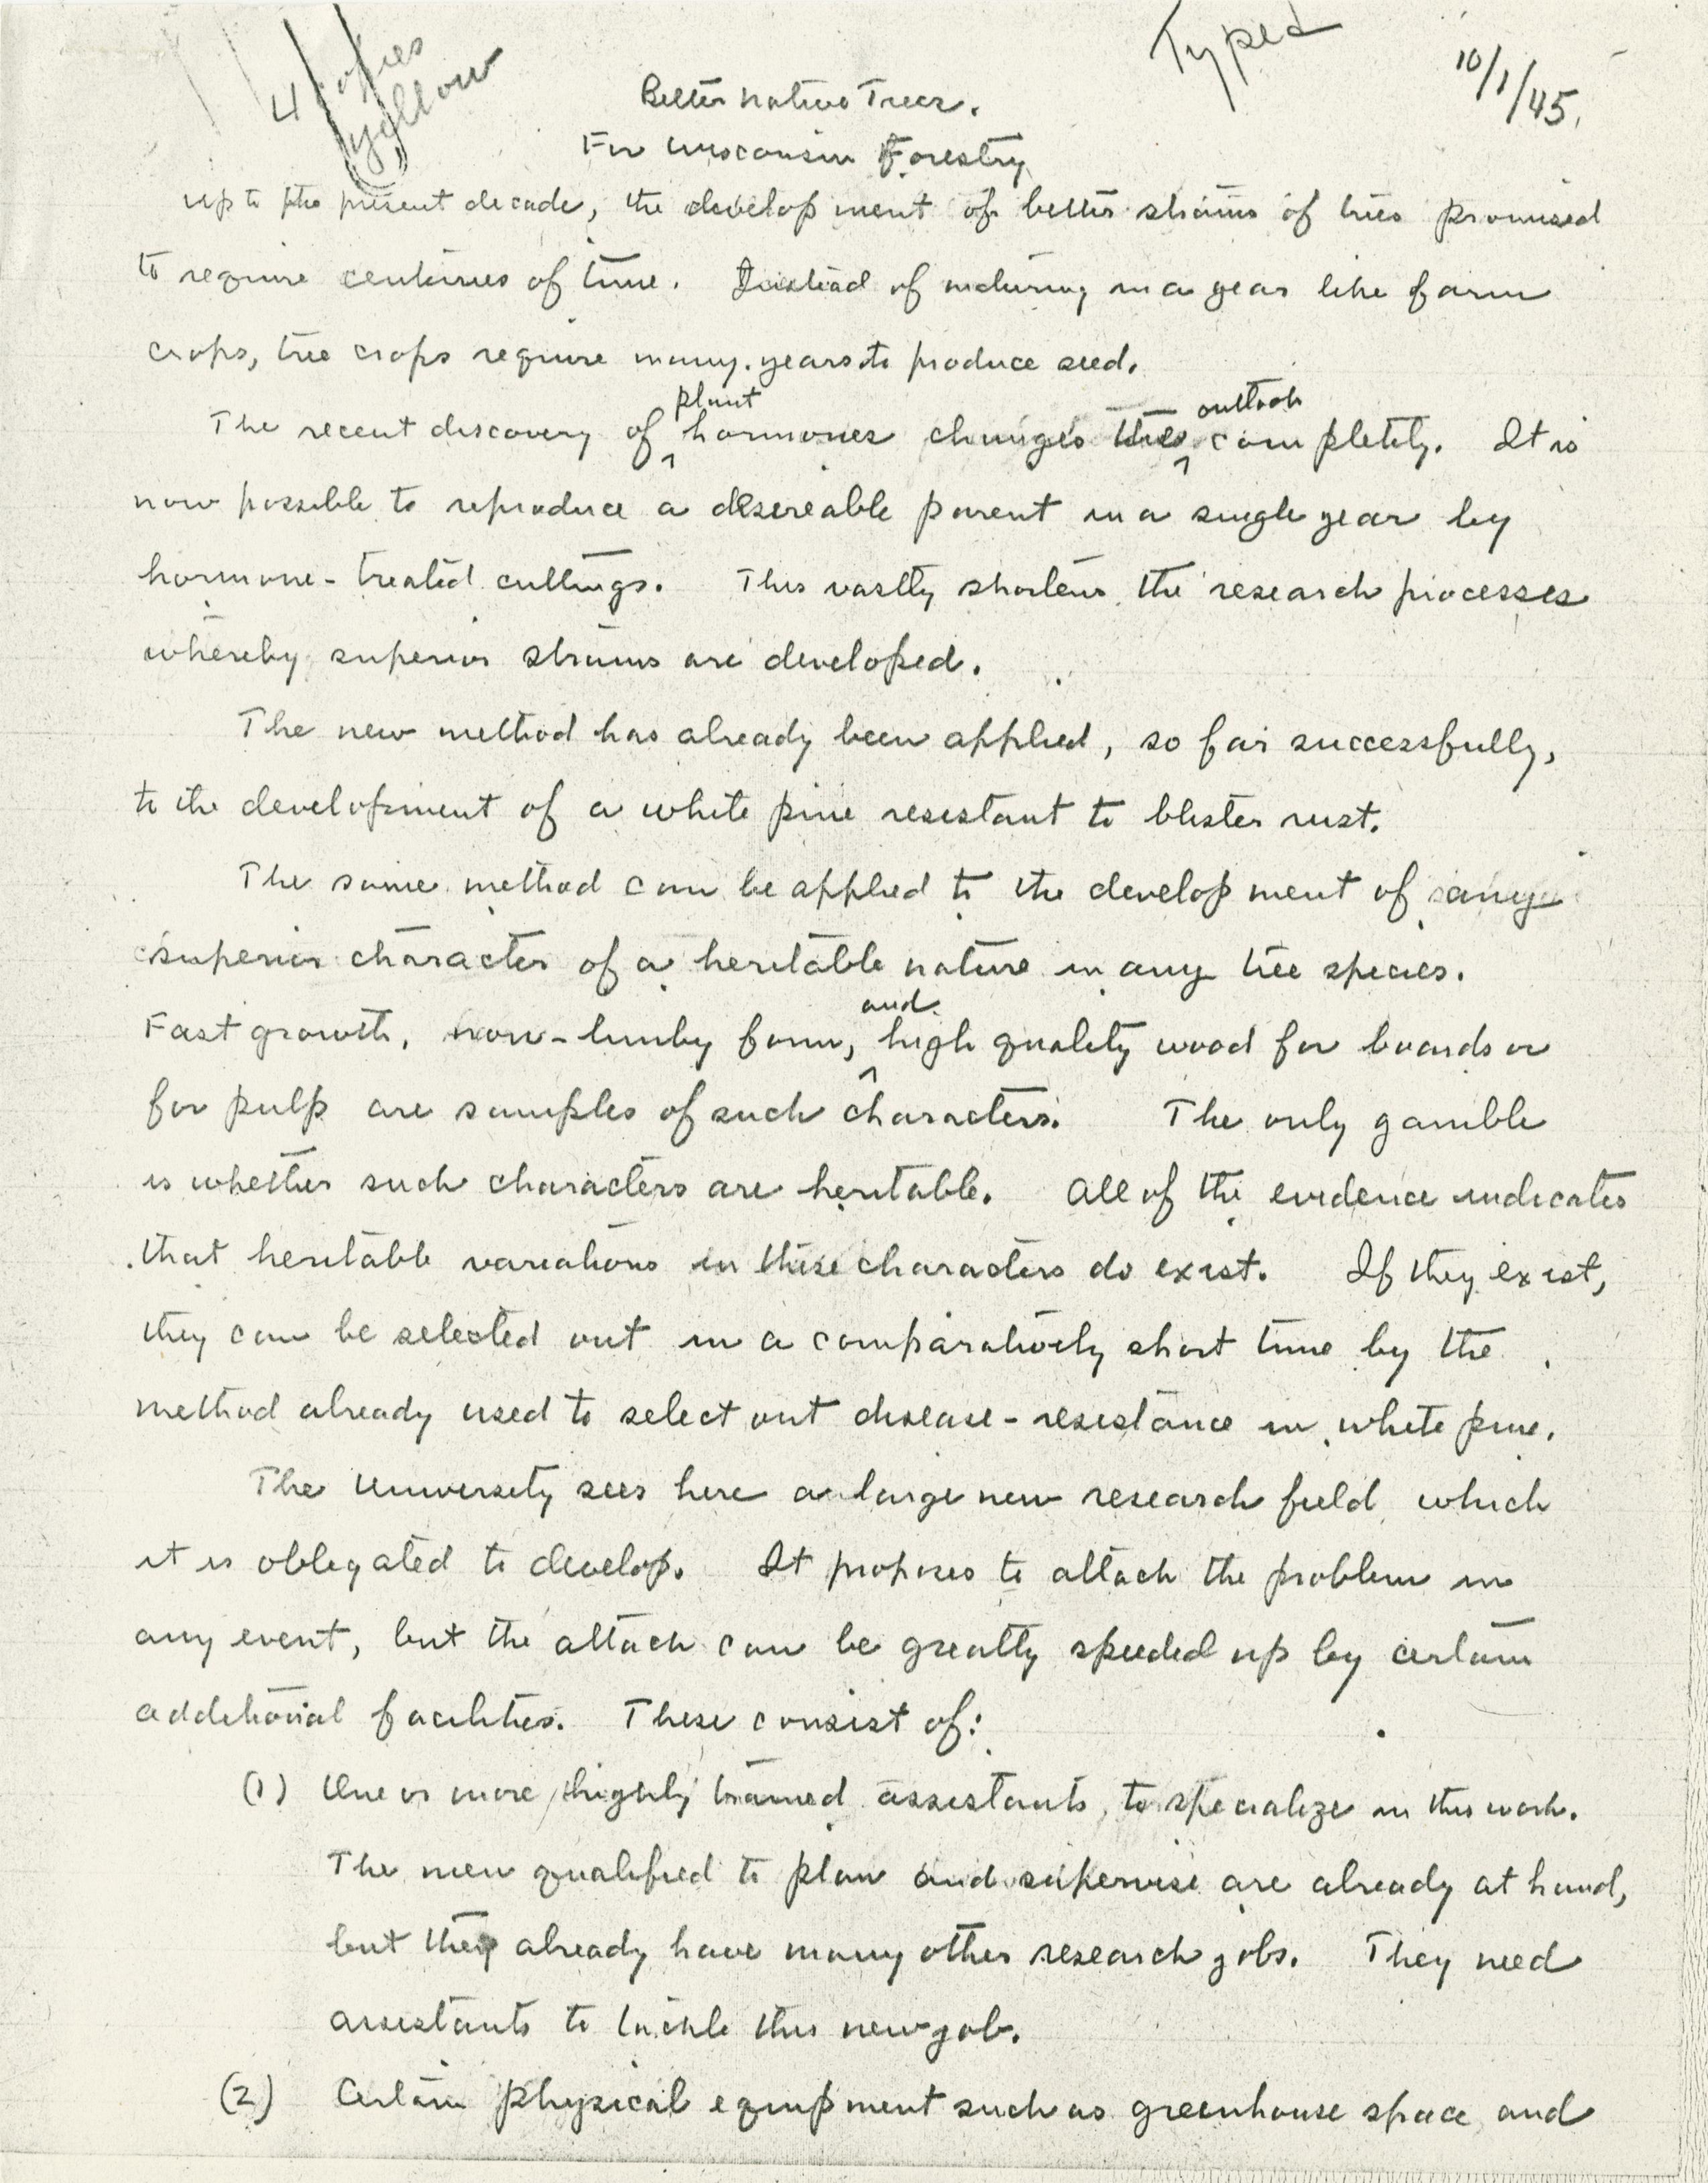 4 copies
yellow
Typed
10/1/45.
Better Native Trees.
For Wisconsin Forestry
up to the present decade, the development of better strains of trees promised
to require centuries of time. Instead of maturing in a year like farm
crops, tree crops require many years to produce seed.
The recent discovery of plant hormones changes this outlook completely. It is
now possible to reproduce a desireable parent in a single year by
hormone-treated cuttings. This vastly shortens the research processes
whereby superior strains are developed.
The new method has already been applied, so far successfully,
to the development of a white pine resistant to blister rust.
The same method can be applied to the development of any
superior character of a heritable nature in any tree species.
Fast growth, non-limby form, and high quality wood for boards or
for pulp are samples of such characters. The only gamble
is whether such characters are heritable. All of the evidence indicates
that heritable variations in these characters do exist. If they exist,
they can be selected out in a comparatively short time by the
method already used to select out disease-resistance in white pine.
The University sees here a large new research field which
it is obligated to develop. It proposes to attack the problem in
any event, but the attack can be greatly speeded up by certain
additional facilities. These consist of:
(1) One or more highly trained assistants, to specialize in this work.
The men qualified to plan and supervise are already at hand,
but they already have many other research jobs. They need
assistants to tackle this new job.
(2) Certain physical equipment such as greenhouse space and